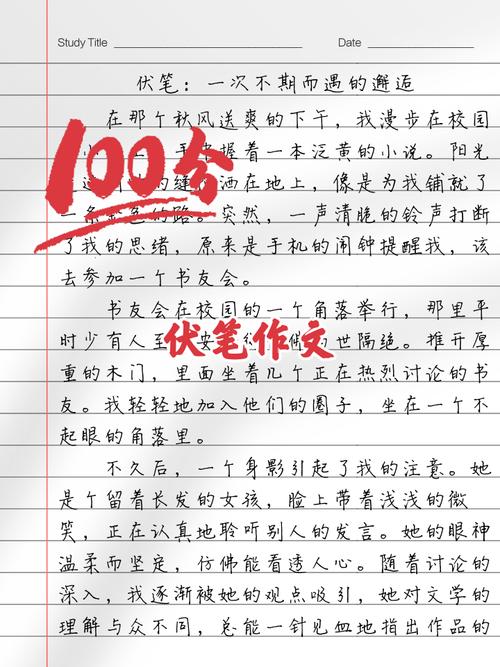 Study Title Date
伏笔：一次不期而遇的邂逅
在那个秋风送爽的下午，我漫步在校园
握着一本泛黄的小说。阳光
洒在地上，像是为我铺就了
一条金色的路。突然，一声清脆的铃声打断
了我的思绪，原来是手机的闹钟提醒我，该
去参加一个书友会。
100分
书友会在校园的一个角落举行，那里平
时少有人至，安 世隔绝。推开厚
伏笔作文
重的木门，里面坐着几个正在热烈讨论的书
友。我轻轻地加入他们的圈子，坐在一个不
起眼的角落里。
不久后，一个身影引起了我的注意。她
是个留着长发的女孩，脸上带着浅浅的微
笑，正在认真地聆听别人的发言。她的眼神
温柔而坚定，仿佛能看透人心。随着讨论的
深入，我逐渐被她的观点吸引，她对文学的
理解与众不同，总能一针见血地指出作品的